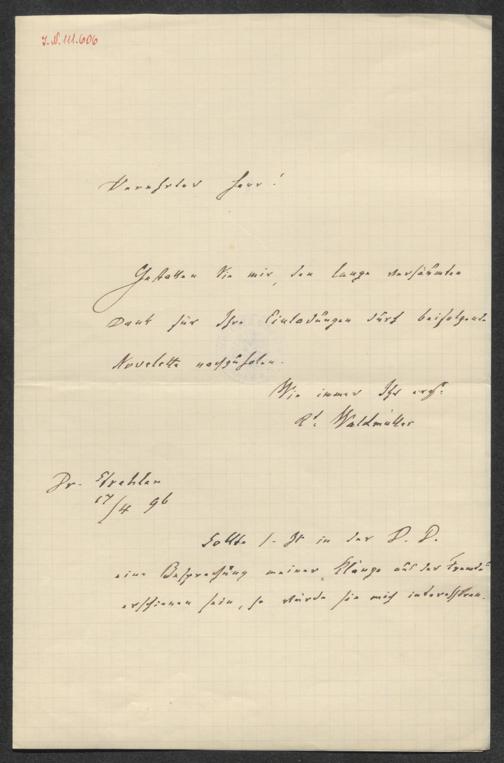 J.N. 111.606
Verehrter Herr!
Gestatten Sie mir, den lange versäumten
Dank für Ihre Einladungen durch beifolgende
Novelette nachzuholen.
Wie immer Ihr erg.
Rd. Waldmüller
Dr. Strehlen
17/4 96
Sollte s. Zt in der D. D.
eine Besprechung meiner „Klänge aus der Fremde"
erschienen sein, so würde sie mich interessiren.